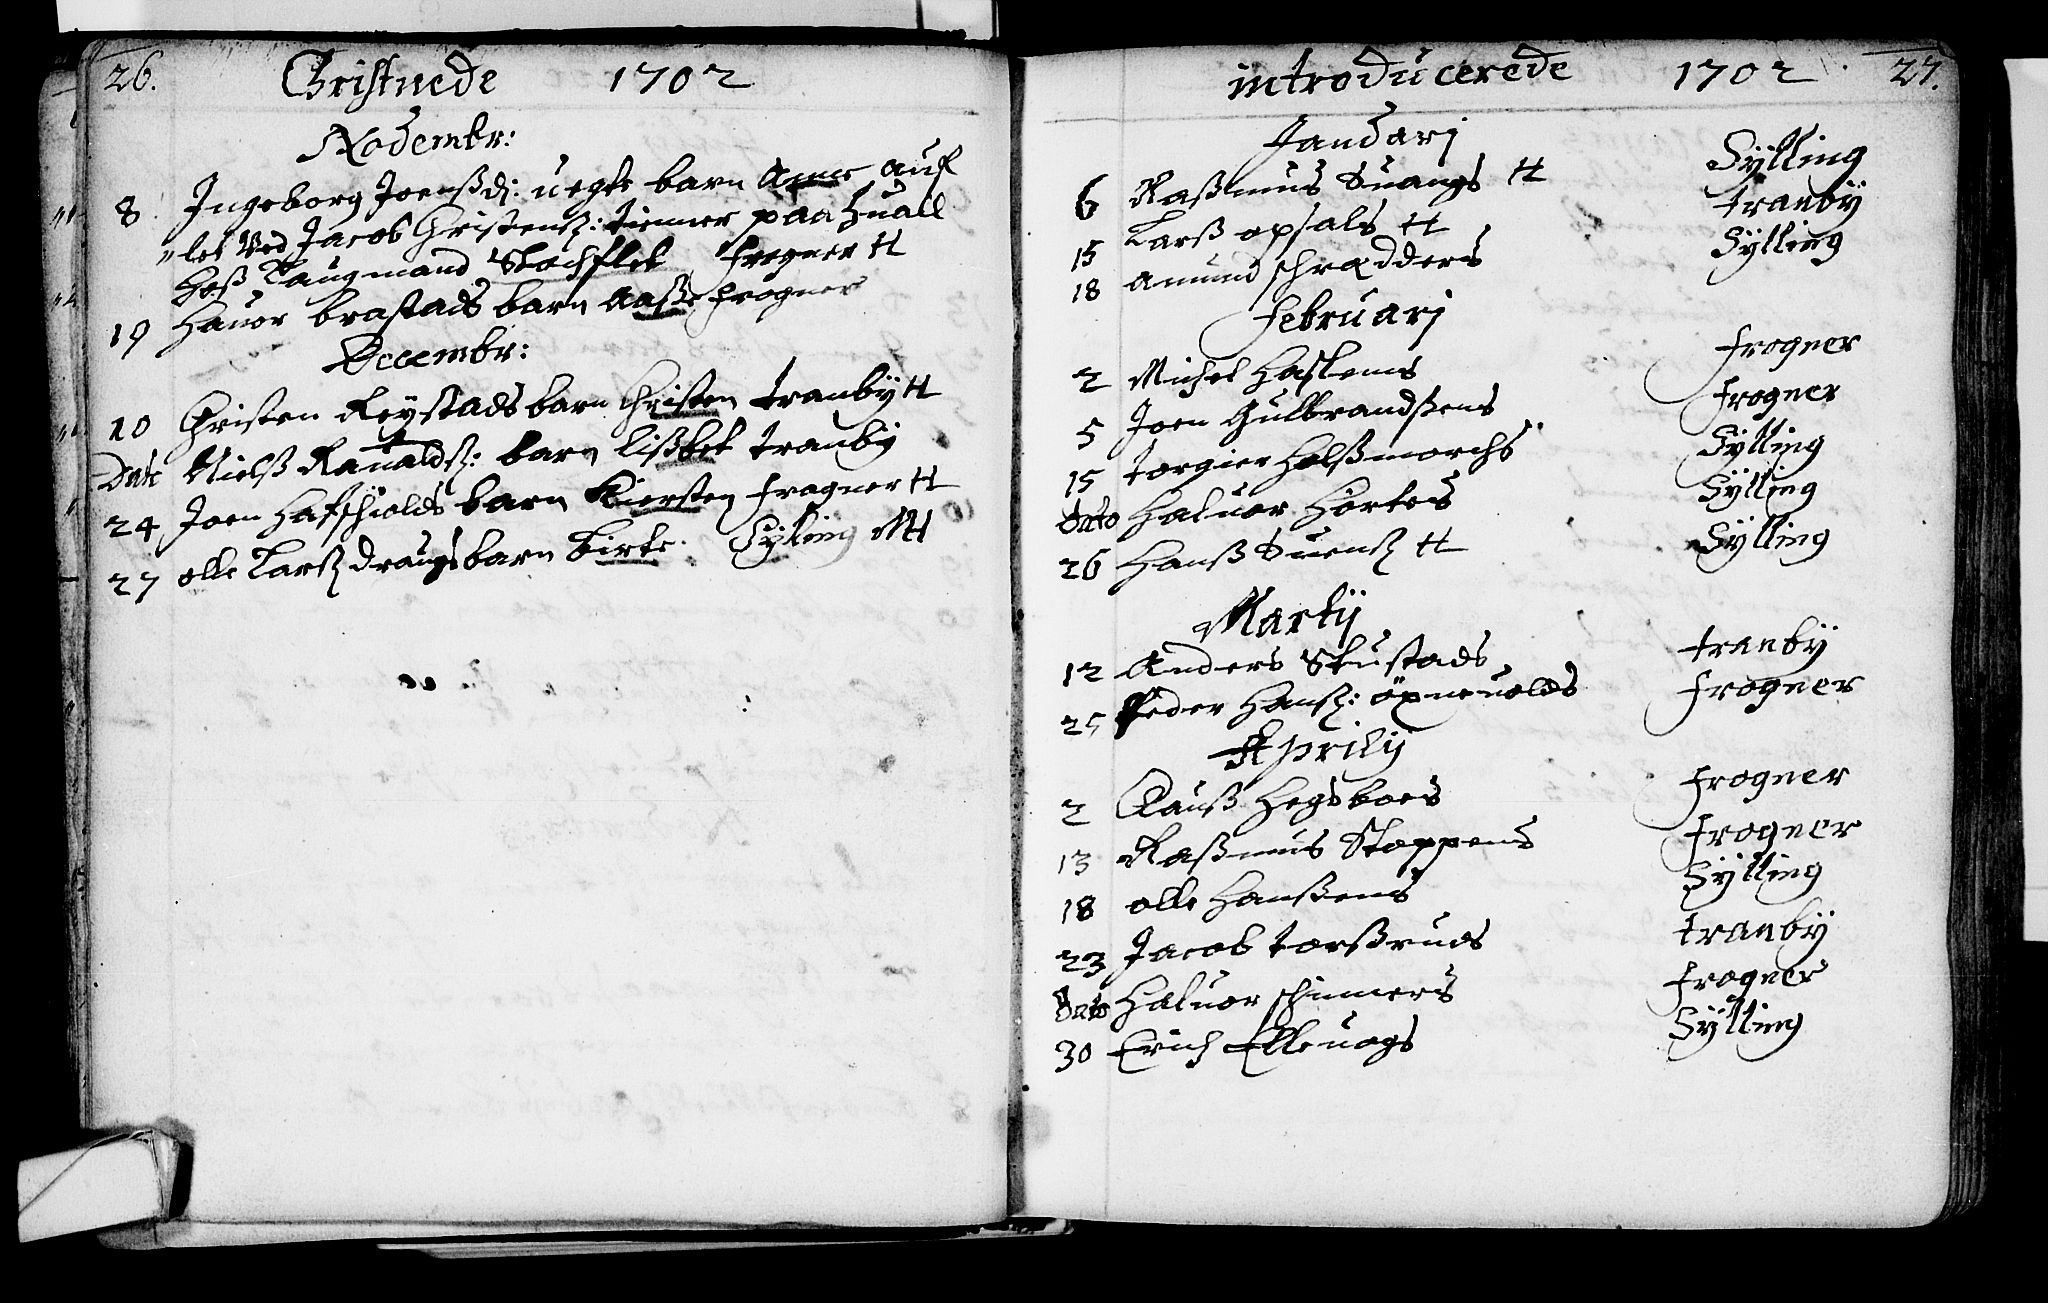 26. Christnede 1702
Novembr:
8. Ingeborg Joensdj: uegte barn Anne auf
"let Ved Jacob Christensß: tienner paa Huall
hoß Laugmand Stochflet frogner H
19 Hauor brastads barn Aaße frogner
Decembr:
10 Christen Reÿstads barn Christen tranbÿ H
Dato Nielß Ranaldsß: barn Lißbet tranbÿ
24 Joen Hafschiolds barn Kiersten frogner H
27 olle Larß draugs barn birte. Sÿlling MH
introducerede 1702. 27.
Januarj
6 Raßmus Suangs H Sÿlling
15 Larß opsals H tranbÿ
18 Amund schrædders Sÿlling
februarj
2 Michel Haskems frogner
5 Joen Gulbrandßens frogner
15 torgier Holßmorchs Sÿlling
Dato Haluor Hörtes Sÿlling
26 Hanß Suensß H Sÿlling
Martij
12 Anders Skustads tranbÿ
25 Peder Hansß: öpneuolds frogner
Aprilij
2 Clauß Hegsboes frogner
13 Raßmus Stoppens frogner
18 olle Hanßens Sÿlling
23 Jacob torßruds tranbÿ
Dato Haluor schinners frogner
30 Erich Elleuogs Sÿlling